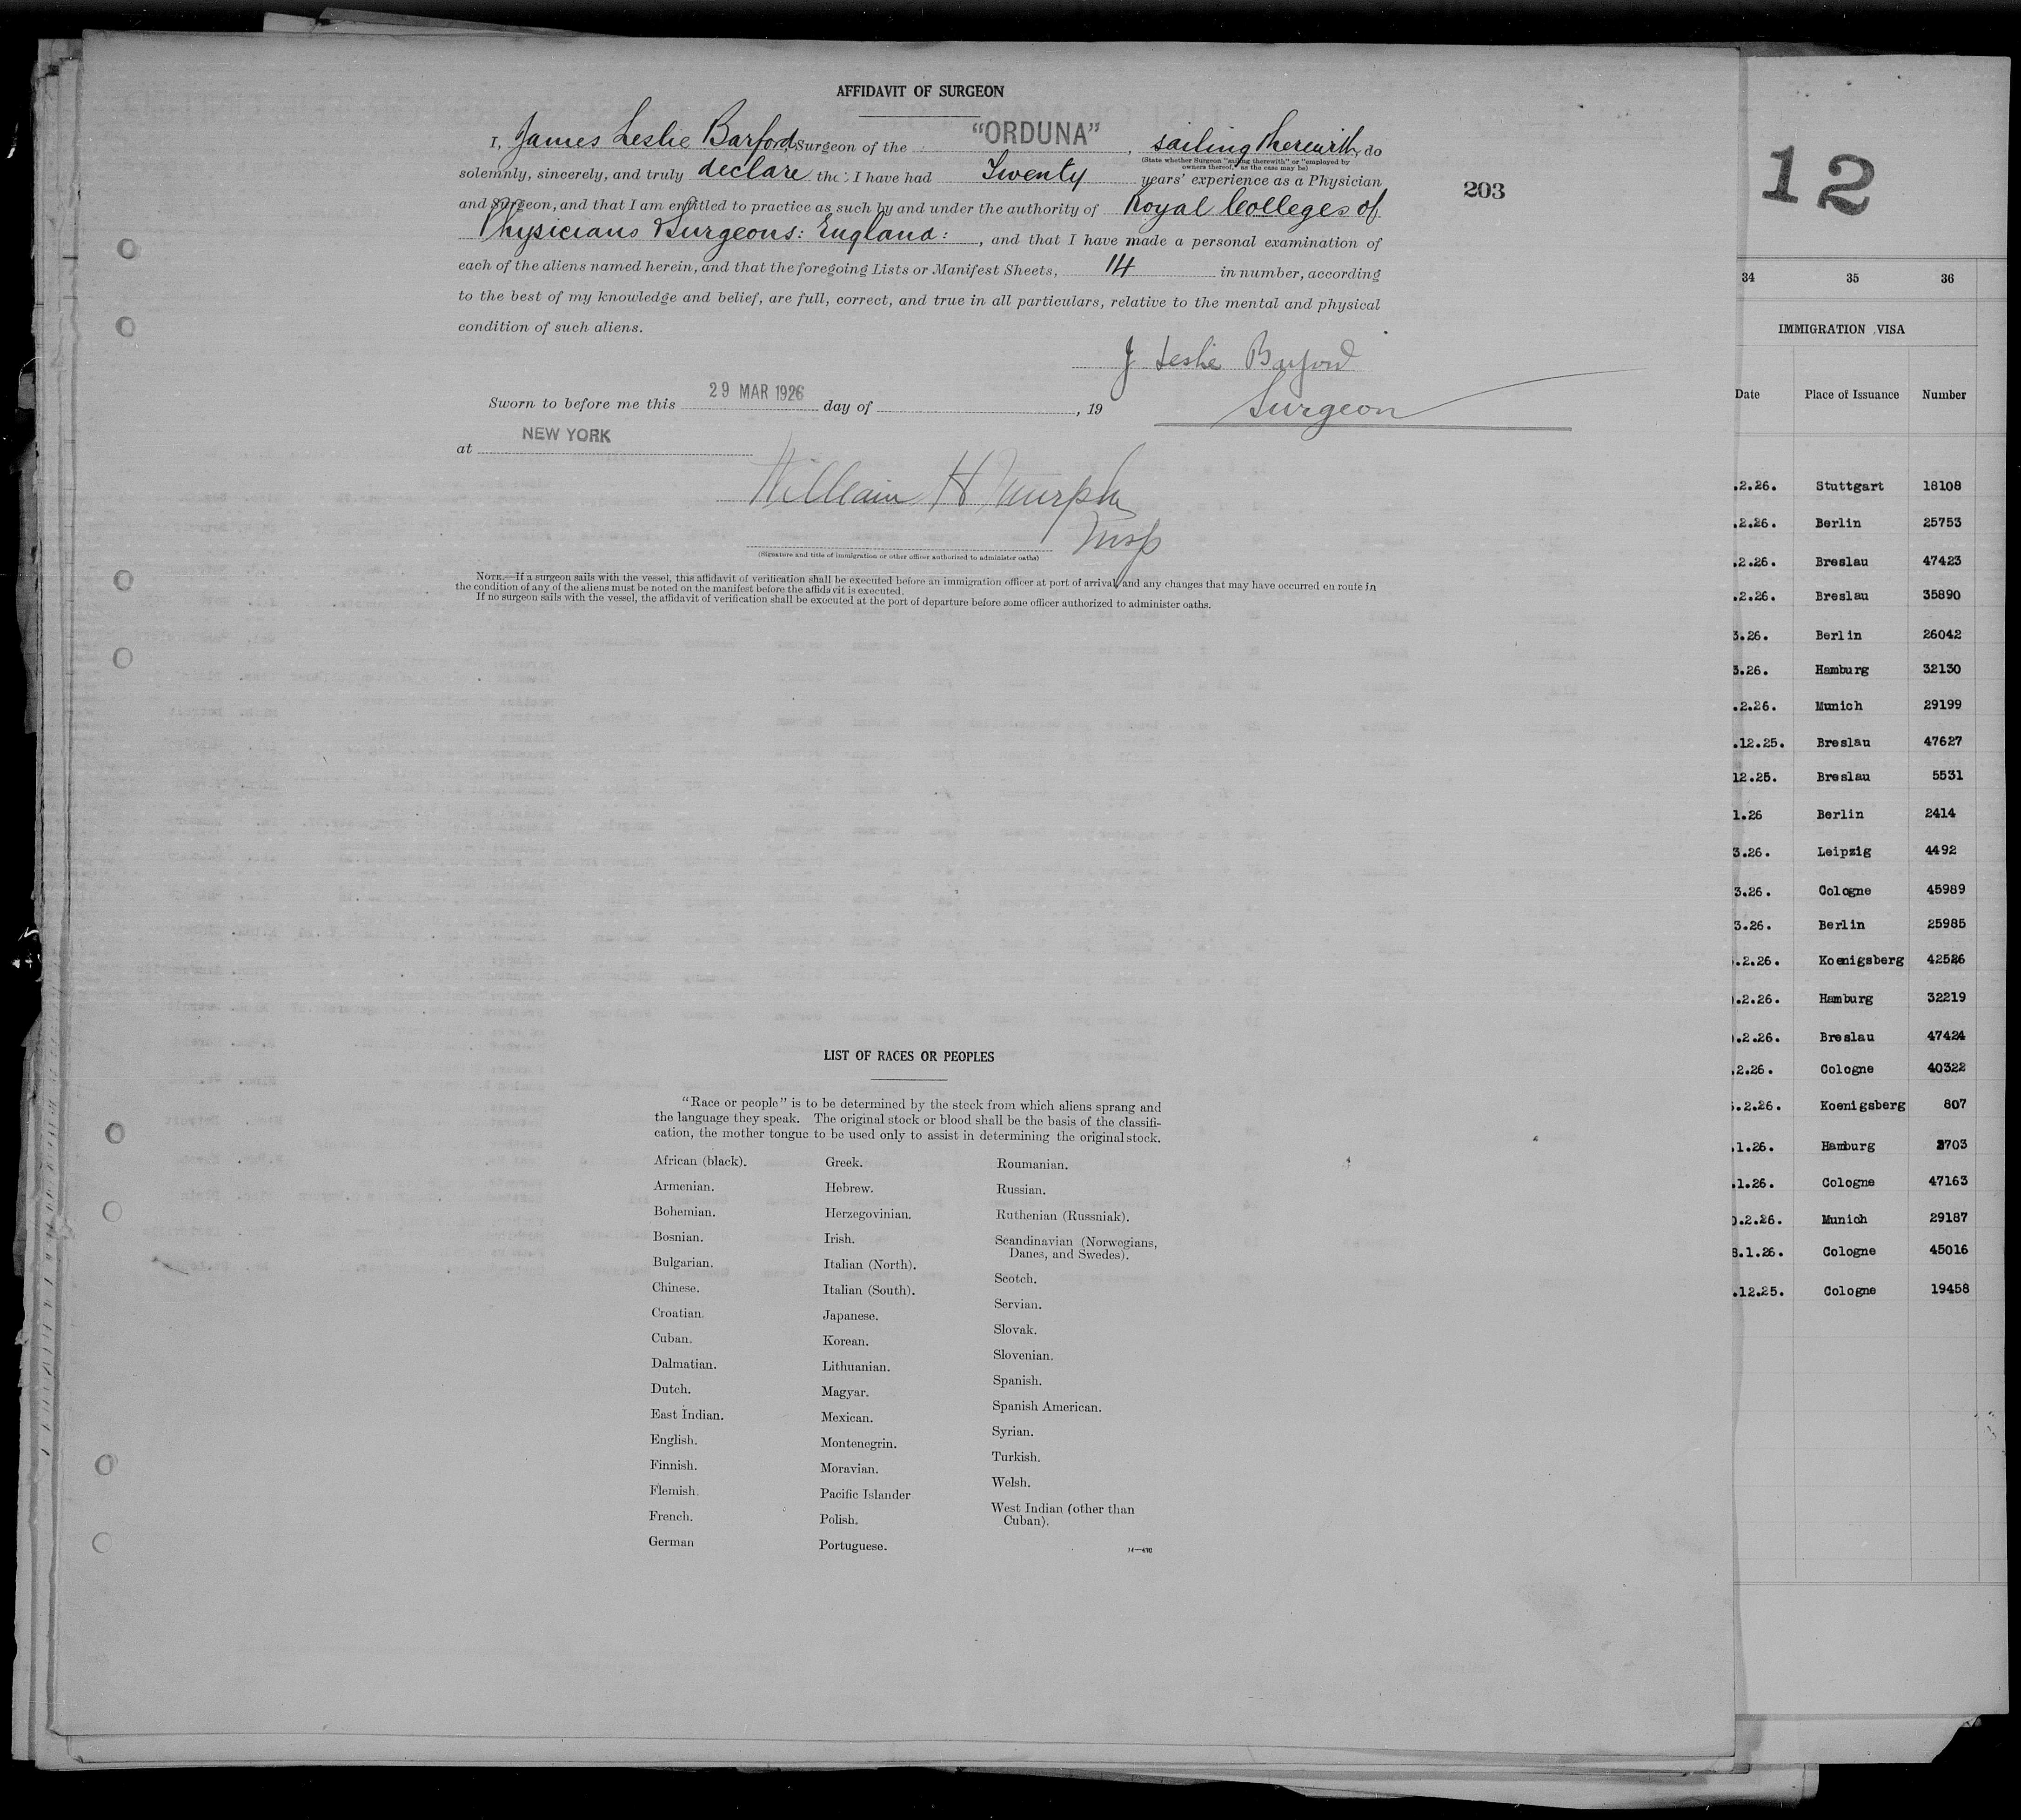 AFFIDAVIT OF SURGEON
I, James Leslie Barford, Surgeon of the "ORDUNA", sailing therewith, do
(State whether Surgeon "sailing therewith" or "employed by
owners thereof," as the case may be)
solemnly, sincerely, and truly declare the: I have had Twenty years' experience as a Physician
and Surgeon, and that I am entitled to practice as such by and under the authority of Royal Colleges of
Physicians & Surgeons: England:, and that I have made a personal examination of
each of the aliens named herein, and that the foregoing Lists or Manifest Sheets, 14 in number, according
to the best of my knowledge and belief, are full, correct, and true in all particulars, relative to the mental and physical
condition of such aliens.
J Leslie Barford
Surgeon
Sworn to before me this 29 MAR 1926 day of , 19
at NEW YORK
William H Murphy
Insp
(Signature and title of immigration or other officer authorized to administer oaths)
NOTE.—If a surgeon sails with the vessel, this affidavit of verification shall be executed before an immigration officer at port of arrival, and any changes that may have occurred en route in
the condition of any of the aliens must be noted on the manifest before the affidavit is executed.
If no surgeon sails with the vessel, the affidavit of verification shall be executed at the port of departure before some officer authorized to administer oaths.
203
LIST OF RACES OR PEOPLES
"Race or people" is to be determined by the stock from which aliens sprang and
the language they speak. The original stock or blood shall be the basis of the classifi-
cation, the mother tongue to be used only to assist in determining the original stock.
African (black).
Armenian.
Bohemian.
Bosnian.
Bulgarian.
Chinese.
Croatian.
Cuban.
Dalmatian.
Dutch.
East Indian.
English.
Finnish.
Flemish.
French.
German
Greek.
Hebrew.
Herzegovinian.
Irish.
Italian (North).
Italian (South).
Japanese.
Korean.
Lithuanian.
Magyar.
Mexican.
Montenegrin.
Moravian.
Pacific Islander
Polish.
Portuguese.
Roumanian.
Russian.
Ruthenian (Russniak).
Scandinavian (Norwegians,
Danes, and Swedes).
Scotch.
Servian.
Slovak.
Slovenian.
Spanish.
Spanish American.
Syrian.
Turkish.
Welsh.
West Indian (other than
Cuban).
12
34 35 36
IMMIGRATION VISA
Date Place of Issuance Number
.2.26. Stuttgart 18108
.2.26. Berlin 25753
.2.26. Breslau 47423
.2.26. Breslau 35890
3.26. Berlin 26042
3.26. Hamburg 32130
.2.26. Munich 29199
.12.25. Breslau 47627
12.25. Breslau 5531
1.26 Berlin 2414
3.26. Leipzig 4492
3.26. Cologne 45989
3.26. Berlin 25985
.2.26. Koenigsberg 42526
.2.26. Hamburg 32219
.2.26. Breslau 47424
.2.26. Cologne 40322
.2.26. Koenigsberg 807
.1.26. Hamburg 2703
.1.26. Cologne 47163
.2.26. Munich 29187
8.1.26. Cologne 45016
.12.25. Cologne 19458